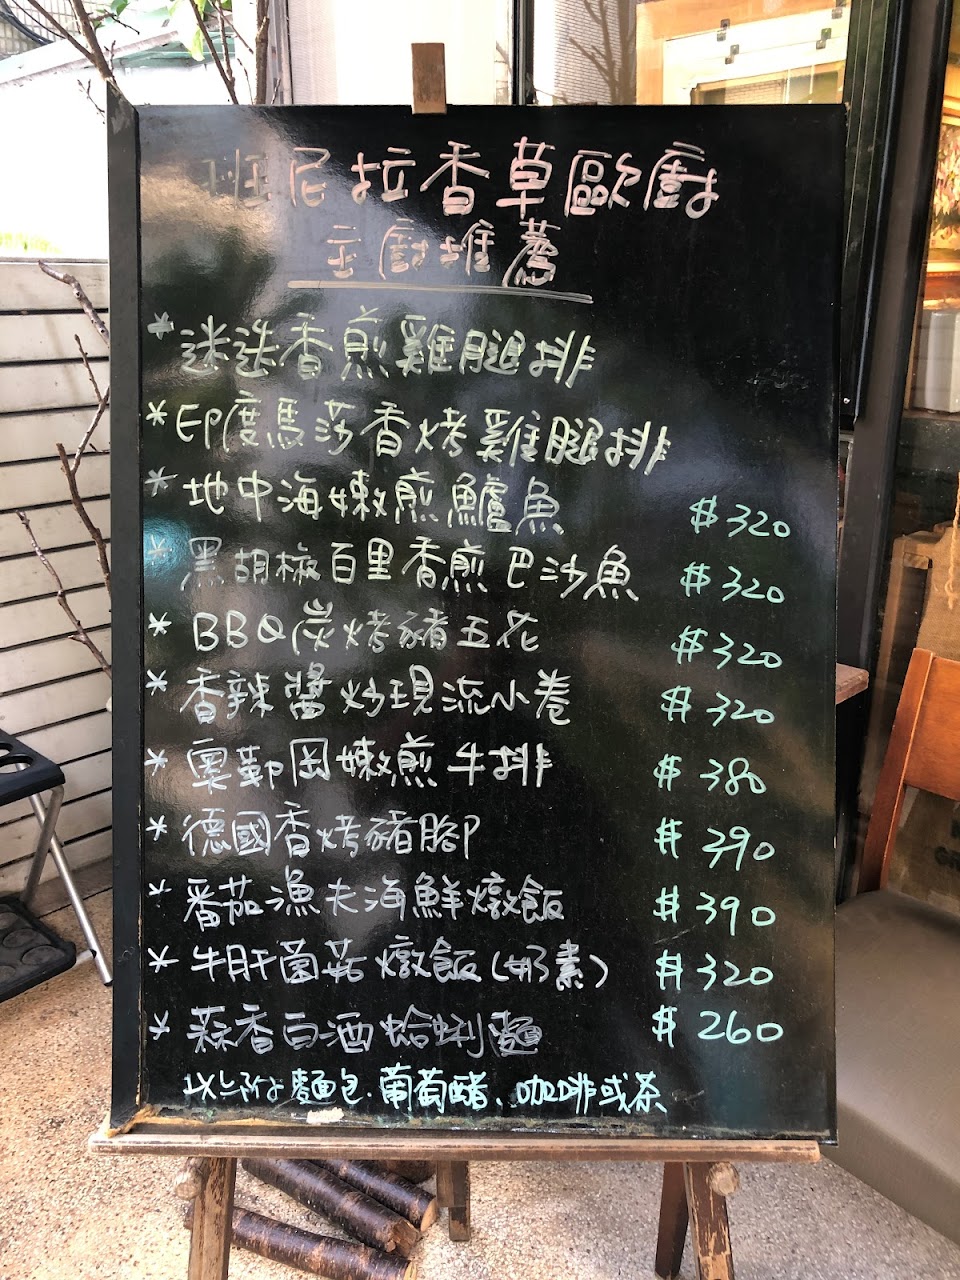 班尼拉香草歐廚
主廚推薦
*迷迭香煎雞腿排
*印度馬莎香烤雞腿排
*地中海嫩煎鱸魚 $320
*黑胡椒百里香煎巴沙魚 $320
*BBQ炭烤豬五花 $320
*香辣醬炒現流小卷 $320
*奧勒岡嫩煎牛排 $380
*德國香烤豬腳 $390
*番茄漁夫海鮮燉飯 $390
*牛肝菌菇燉飯(奶素) $320
*蒜香白酒蛤蜊麵 $260
以上附麵包.葡萄醋、咖啡或茶